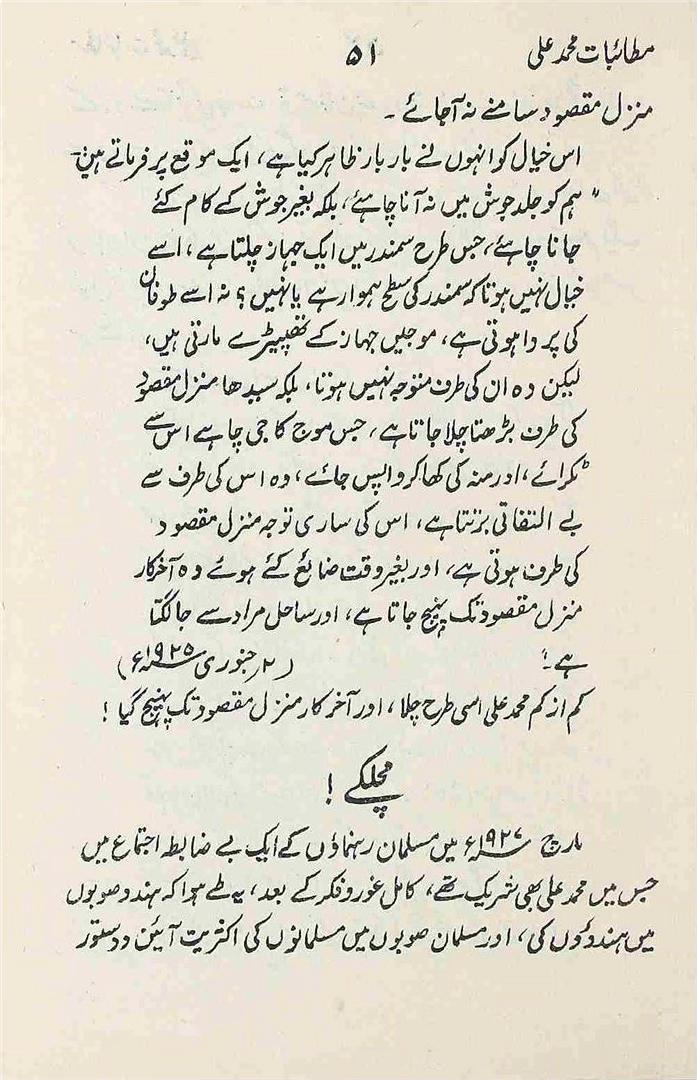 مطائبات محمد علی
۵۱
منزل مقصود سامنے نہ آجائے۔
اس خیال کو انہوں نے بار بار ظاہر کیا ہے، ایک موقع پر فرماتے ہیں۔
"ہم کو جلد جوش میں نہ آنا چاہئے، بلکہ بغیر جوش کے کام کئے
جانا چاہئے، جس طرح سمندر میں ایک جہاز چلتا ہے، اسے
خیال نہیں ہوتا کہ سمندر کی سطح ہموار ہے یا نہیں؟ نہ اسے طوفان
کی پروا ہوتی ہے، موجیں جہاز کے تھپیڑے مارتی ہیں،
لیکن وہ ان کی طرف متوجہ نہیں ہوتا، بلکہ سیدھا منزل مقصود
کی طرف بڑھتا چلا جاتا ہے، جس موج کا جی چاہے اس سے
ٹکرائے، اور منہ کی کھا کر واپس جائے، وہ اس کی طرف سے
بے التفاتی برتتا ہے، اس کی ساری توجہ منزل مقصود
کی طرف ہوتی ہے، اور بغیر وقت ضایع کئے ہوئے وہ آخر کار
منزل مقصود تک پہنچ جاتا ہے، اور ساحل مراد سے جا لگتا
ہے۔" (۲ر جنوری ۱۹۲۵ء)
کم از کم محمد علی اسی طرح چلا، اور آخر کار منزل مقصود تک پہنچ گیا!
مچلکے!
مارچ ۱۹۲۷ء میں مسلمان رہنماؤں کے ایک بے ضابطہ اجتماع میں
جس میں محمد علی بھی شریک تھے، کامل غور و فکر کے بعد، یہ طے ہوا کہ ہندو صوبوں
میں ہندوؤں کی، اور مسلمان صوبوں میں مسلمانوں کی اکثریت آئین و دستور